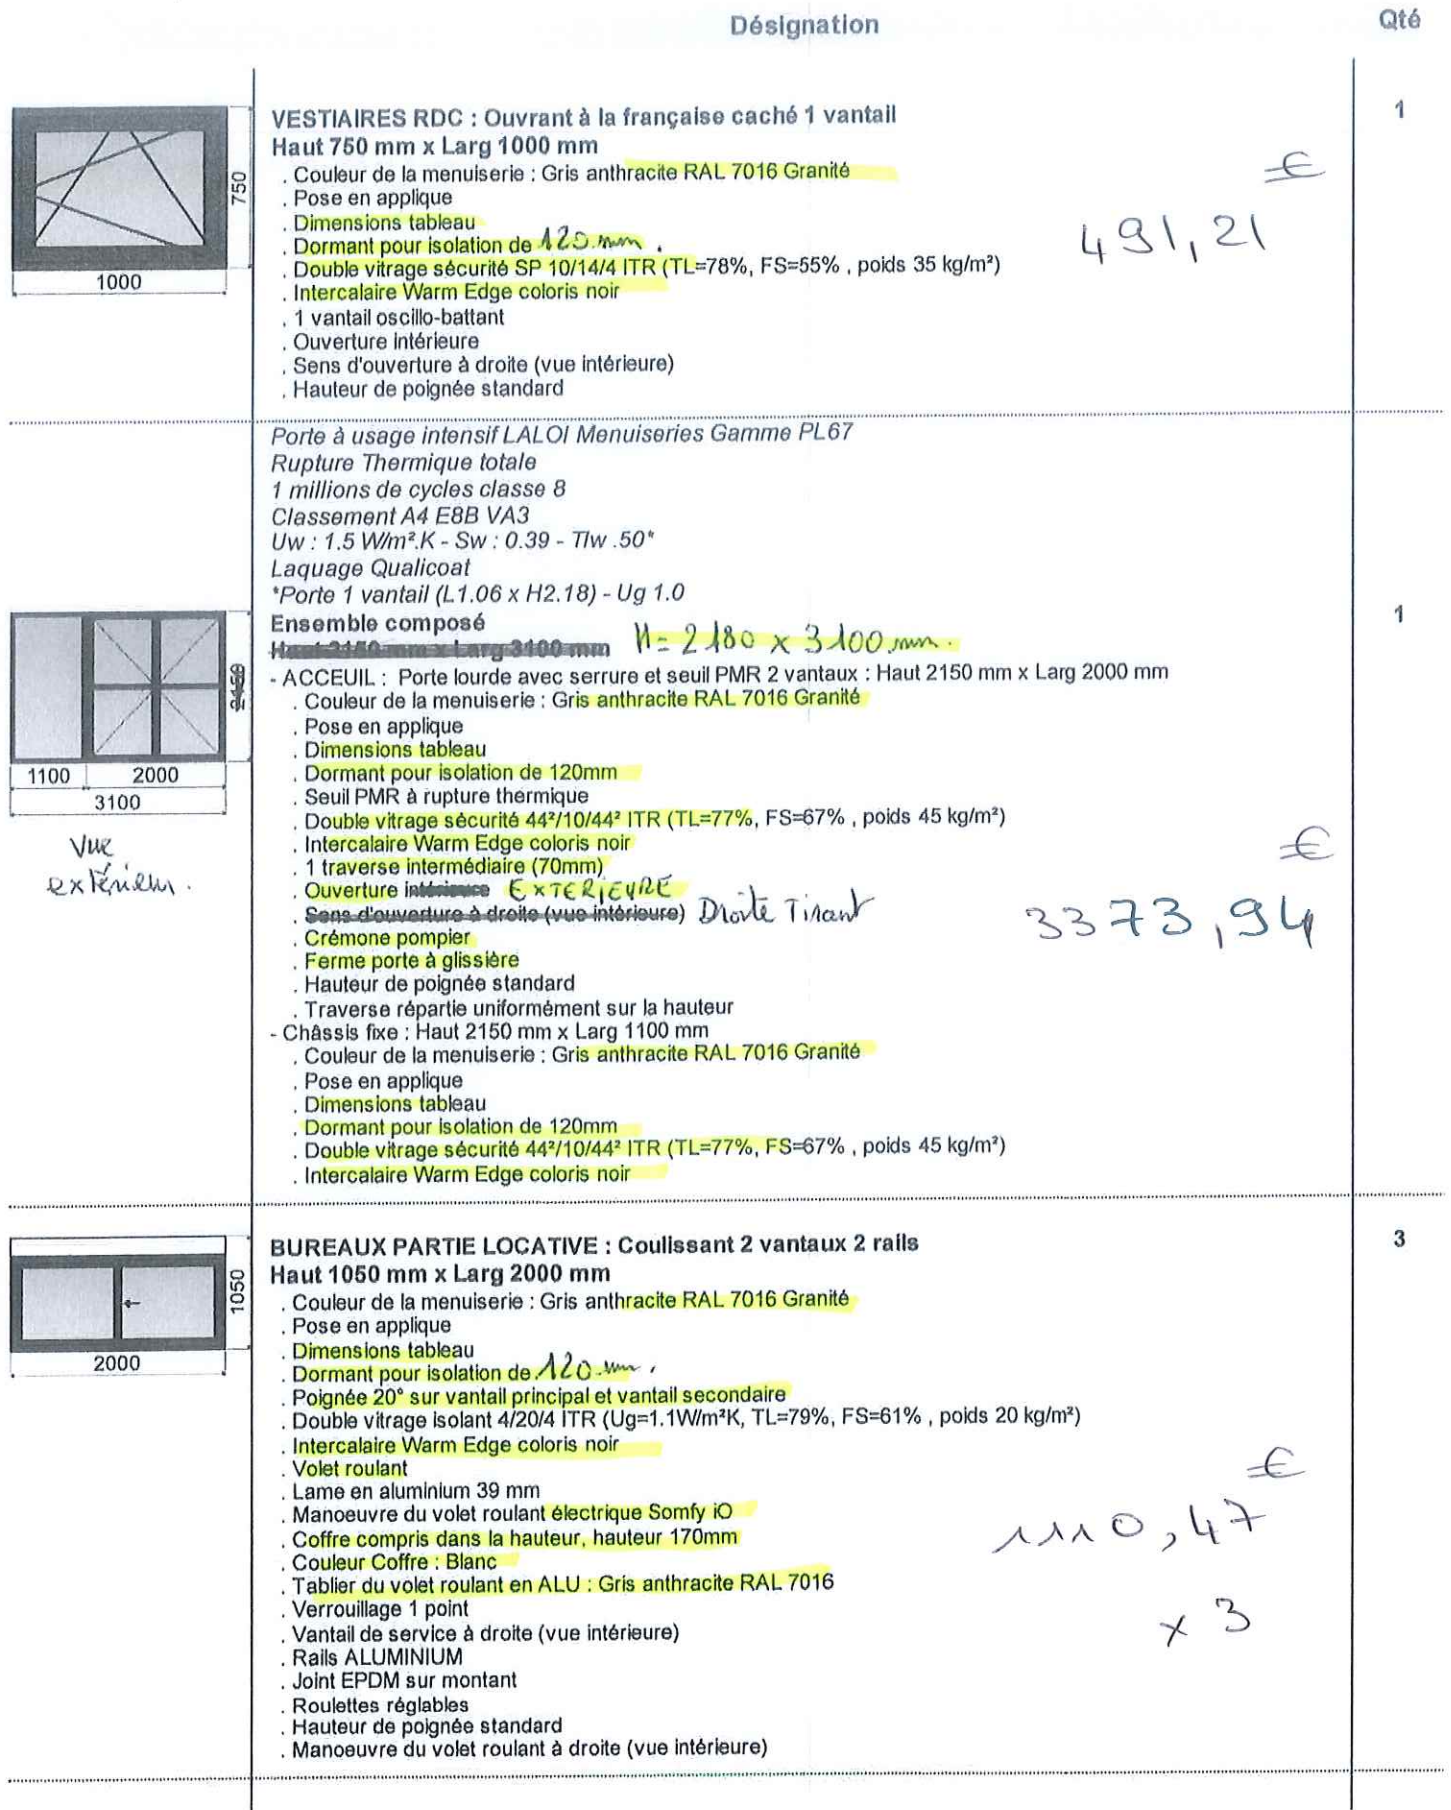 Désignation Qté
VESTIAIRES RDC : Ouvrant à la française caché 1 vantail 1
Haut 750 mm x Larg 1000 mm
. Couleur de la menuiserie : Gris anthracite RAL 7016 Granité
€
. Pose en applique
. Dimensions tableau
491,21
. Dormant pour isolation de 120 mm.
. Double vitrage sécurité SP 10/14/4 ITR (TL=78%, FS=55% , poids 35 kg/m²)
. Intercalaire Warm Edge coloris noir
. 1 vantail oscillo-battant
. Ouverture intérieure
. Sens d'ouverture à droite (vue intérieure)
. Hauteur de poignée standard
750
1000
Porte à usage intensif LALOI Menuiseries Gamme PL67
Rupture Thermique totale
1 millions de cycles classe 8
Classement A4 E8B VA3
Uw : 1.5 W/m².K - Sw : 0.39 - Tlw .50*
Laquage Qualicoat
*Porte 1 vantail (L1.06 x H2.18) - Ug 1.0
Ensemble composé 1
Haut 2150 mm x Larg 3100 mm H= 2180 x 3100 mm.
- ACCEUIL : Porte lourde avec serrure et seuil PMR 2 vantaux : Haut 2150 mm x Larg 2000 mm
. Couleur de la menuiserie : Gris anthracite RAL 7016 Granité
. Pose en applique
. Dimensions tableau
. Dormant pour isolation de 120mm
. Seuil PMR à rupture thermique
. Double vitrage sécurité 44²/10/44² ITR (TL=77%, FS=67% , poids 45 kg/m²)
. Intercalaire Warm Edge coloris noir
€
. 1 traverse intermédiaire (70mm)
. Ouverture intérieure EXTERIEURE
. Sens d'ouverture à droite (vue intérieure) Droite Tirant
3373,94
. Crémone pompier
. Ferme porte à glissière
. Hauteur de poignée standard
. Traverse répartie uniformément sur la hauteur
- Châssis fixe : Haut 2150 mm x Larg 1100 mm
. Couleur de la menuiserie : Gris anthracite RAL 7016 Granité
. Pose en applique
. Dimensions tableau
. Dormant pour isolation de 120mm
. Double vitrage sécurité 44²/10/44² ITR (TL=77%, FS=67% , poids 45 kg/m²)
. Intercalaire Warm Edge coloris noir
2150
1100 2000
3100
Vue
extérieur.
BUREAUX PARTIE LOCATIVE : Coulissant 2 vantaux 2 rails 3
Haut 1050 mm x Larg 2000 mm
. Couleur de la menuiserie : Gris anthracite RAL 7016 Granité
. Pose en applique
. Dimensions tableau
. Dormant pour isolation de 120 mm.
. Poignée 20° sur vantail principal et vantail secondaire
. Double vitrage isolant 4/20/4 ITR (Ug=1.1W/m²K, TL=79%, FS=61% , poids 20 kg/m²)
. Intercalaire Warm Edge coloris noir
. Volet roulant
€
. Lame en aluminium 39 mm
. Manoeuvre du volet roulant électrique Somfy iO
1110,47
. Coffre compris dans la hauteur, hauteur 170mm
. Couleur Coffre : Blanc
. Tablier du volet roulant en ALU : Gris anthracite RAL 7016
. Verrouillage 1 point
x 3
. Vantail de service à droite (vue intérieure)
. Rails ALUMINIUM
. Joint EPDM sur montant
. Roulettes réglables
. Hauteur de poignée standard
. Manoeuvre du volet roulant à droite (vue intérieure)
1050
2000